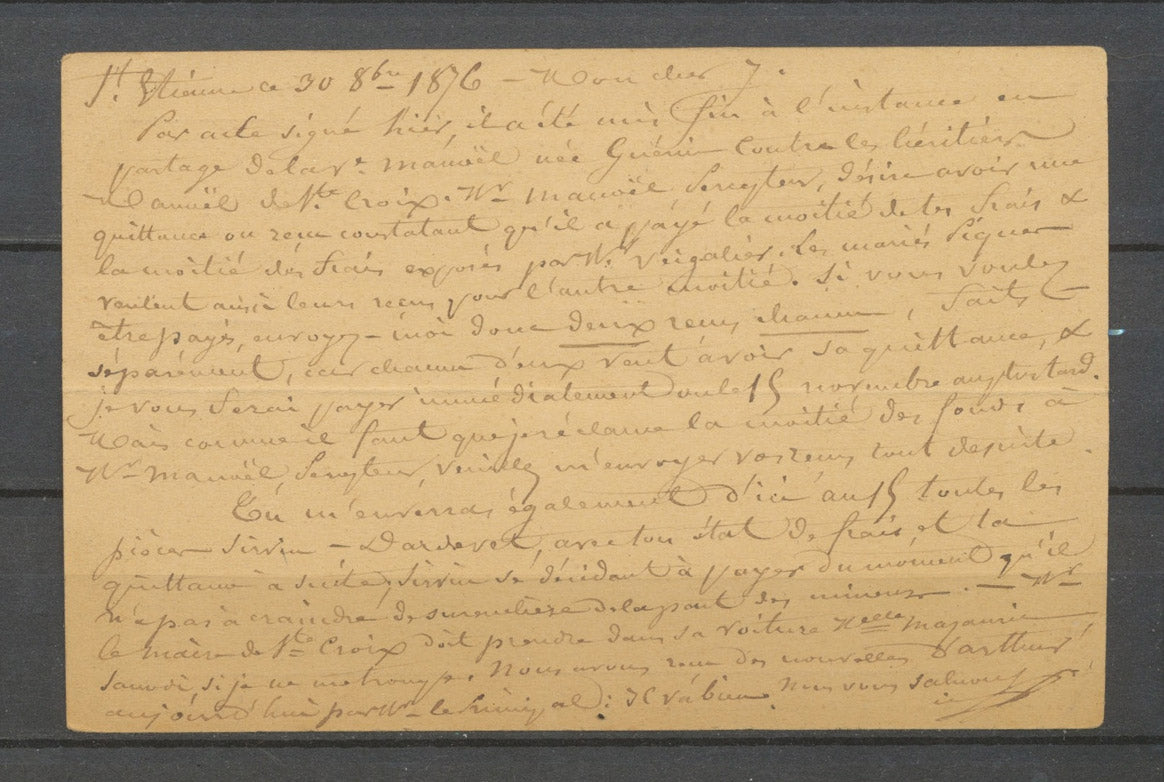 St. Etienne ce 30 8bre 1876 – Mon cher J.
Par acte signé hier, il a été mis fin à l'instance en
partage de la Ve. Manoël née Guérin contre les héritiers
Manoël de Ste. Croix. Mr Manoël Percepteur, désire avoir une
quittance ou reçu constatant qu'il a payé la moitié de tes frais &
la moitié des frais exposés par Me. Veigalier. Les mariés Piguer
veulent aussi leurs reçus pour l'autre moitié. Si vous voulez
être payés, envoyez-moi donc deux reçus chacun, faits
séparément, car chacun d'eux veut avoir sa quittance, &
je vous ferai payer immédiatement ou le 15 novembre au plus tard.
Mais comme il faut que je réclame la moitié des fonds à
Mr. Manoël, Percepteur, veuillez m'envoyer vos reçus tout de suite.
Tu m'enverras également d'ici au 15 toutes les
pièces Sirvin – Dardevet, avec ton état de frais, et ta
quittance à suite, Sirvin se décidant à payer du moment qu'il
n'a pas à craindre de surenchère de la part des mineurs. — Mr
le maire de Ste. Croix doit prendre dans sa voiture Melle Mazaurin
samedi, si je ne me trompe. Nous avons reçu des nouvelles d'Arthur
aujourd'hui par Mr. le Principal: Il va bien. Nous vous saluons